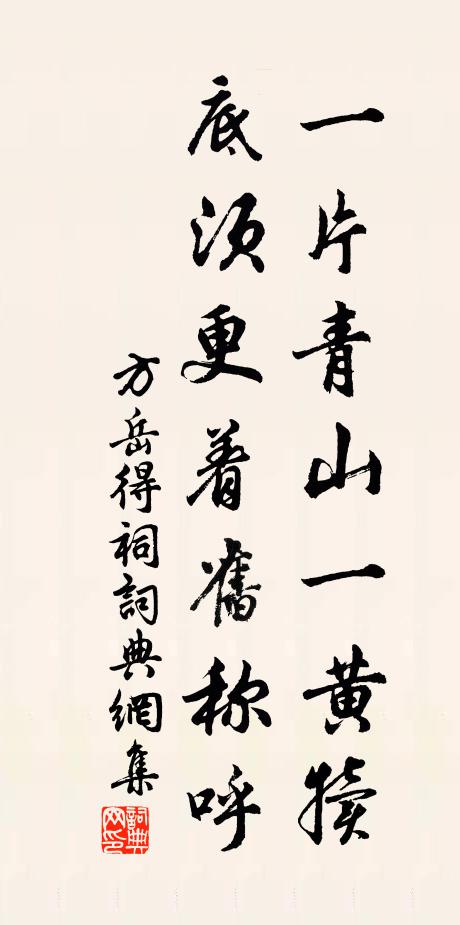 一片青山一黄犢
底須更着舊称呼
方岳得祠詞典網集
詞典網印